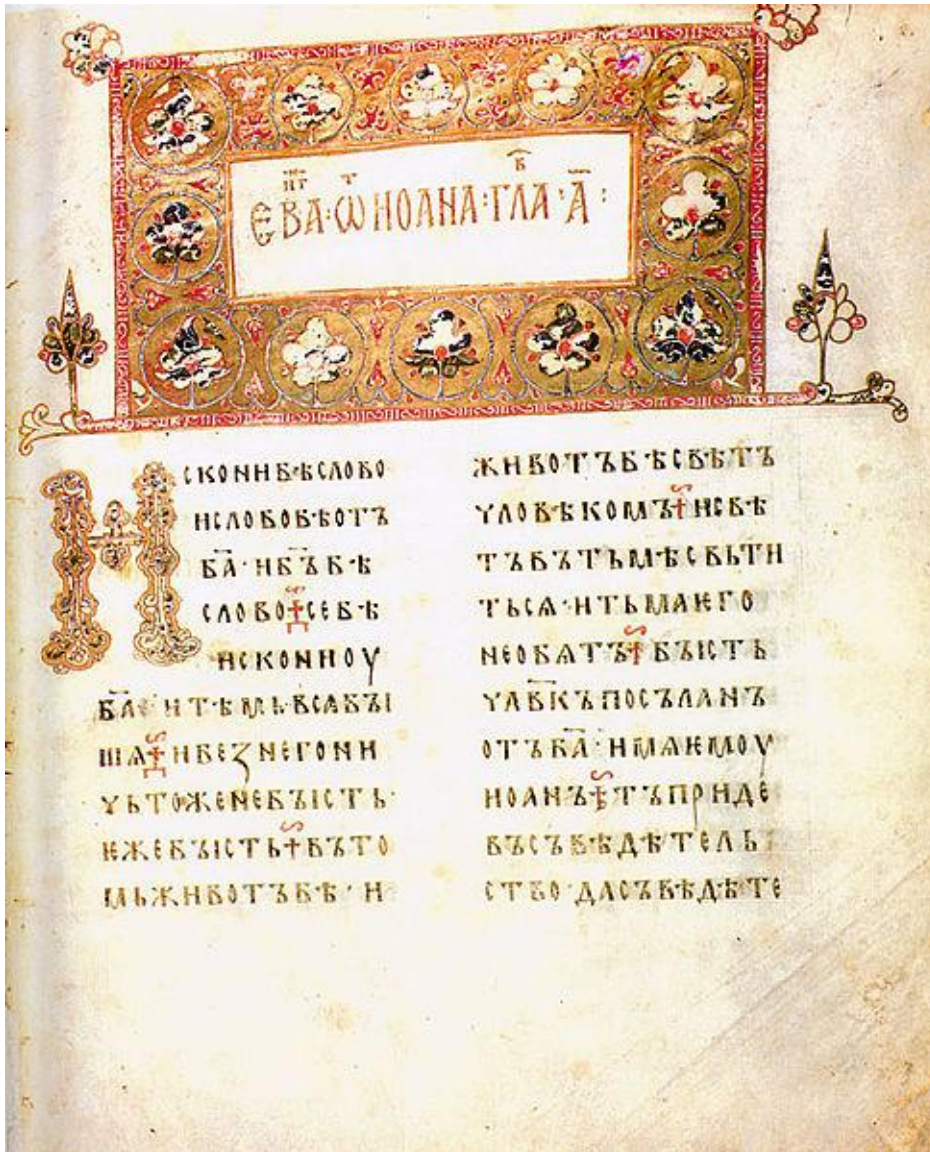 ЕВА·Ѿ ИОАНА·ГЛА·А҃:
Искони бѣ слово
и слово бѣ отъ
б҃а· и б҃ъ бѣ
слово се бѣ
искони оу
б҃а· и тѣмь вся бꙑ
шѧ и без него ни
чьтоже не бꙑсть·
ѥже бꙑсть въ то
мь животъ бѣ· и
животъ бѣ свѣтъ
чловѣкомъ и свѣ
тъ въ тьмѣ свьти
тьсѧ· и тьма ѥго
не обѧтъ бꙑсть
чл҃вкъ посъланъ
отъ б҃а· имѧ ѥмоу
иоанъ тъ приде
въ съвѣдѣтель
ство· да съвѣдѣте